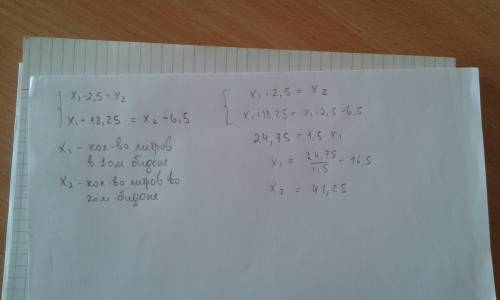 x₁·2,5 = x₂
x₁ + 18,25 = x₂ - 6,5
x₁ - кол-во литров
в 1ом бидоне
x₂ - кол-во литров во
2ом бидоне
x₁·2,5 = x₂
x₁ + 18,25 = x₁·2,5 - 6,5
24,75 = 1,5 x₁
x₁ = 24,75/1,5 = 16,5
x₂ = 41,25